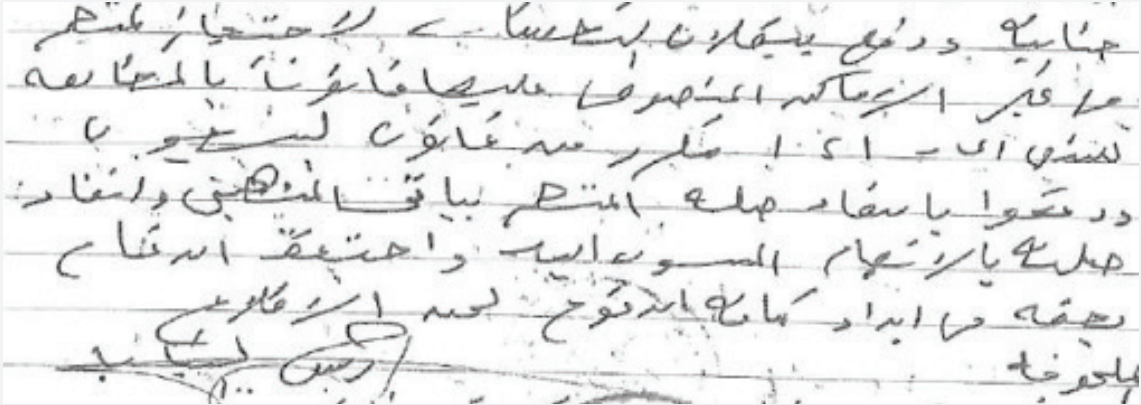 جنائية ودفع ببطلان احتجاز المتهم
في غير الأماكن المنصوص عليها قانوناً بالمخالفة
لنص المادة ١ مكرر من قانون السجون
ودفعوا بانتفاء صلة المتهم بباقي المتهمين وانتفاء
صلته بالاتهام المسند إليه واحتفظ الدفاع
بحقه في ابداء كافة الدفوع لحين الاطلاع